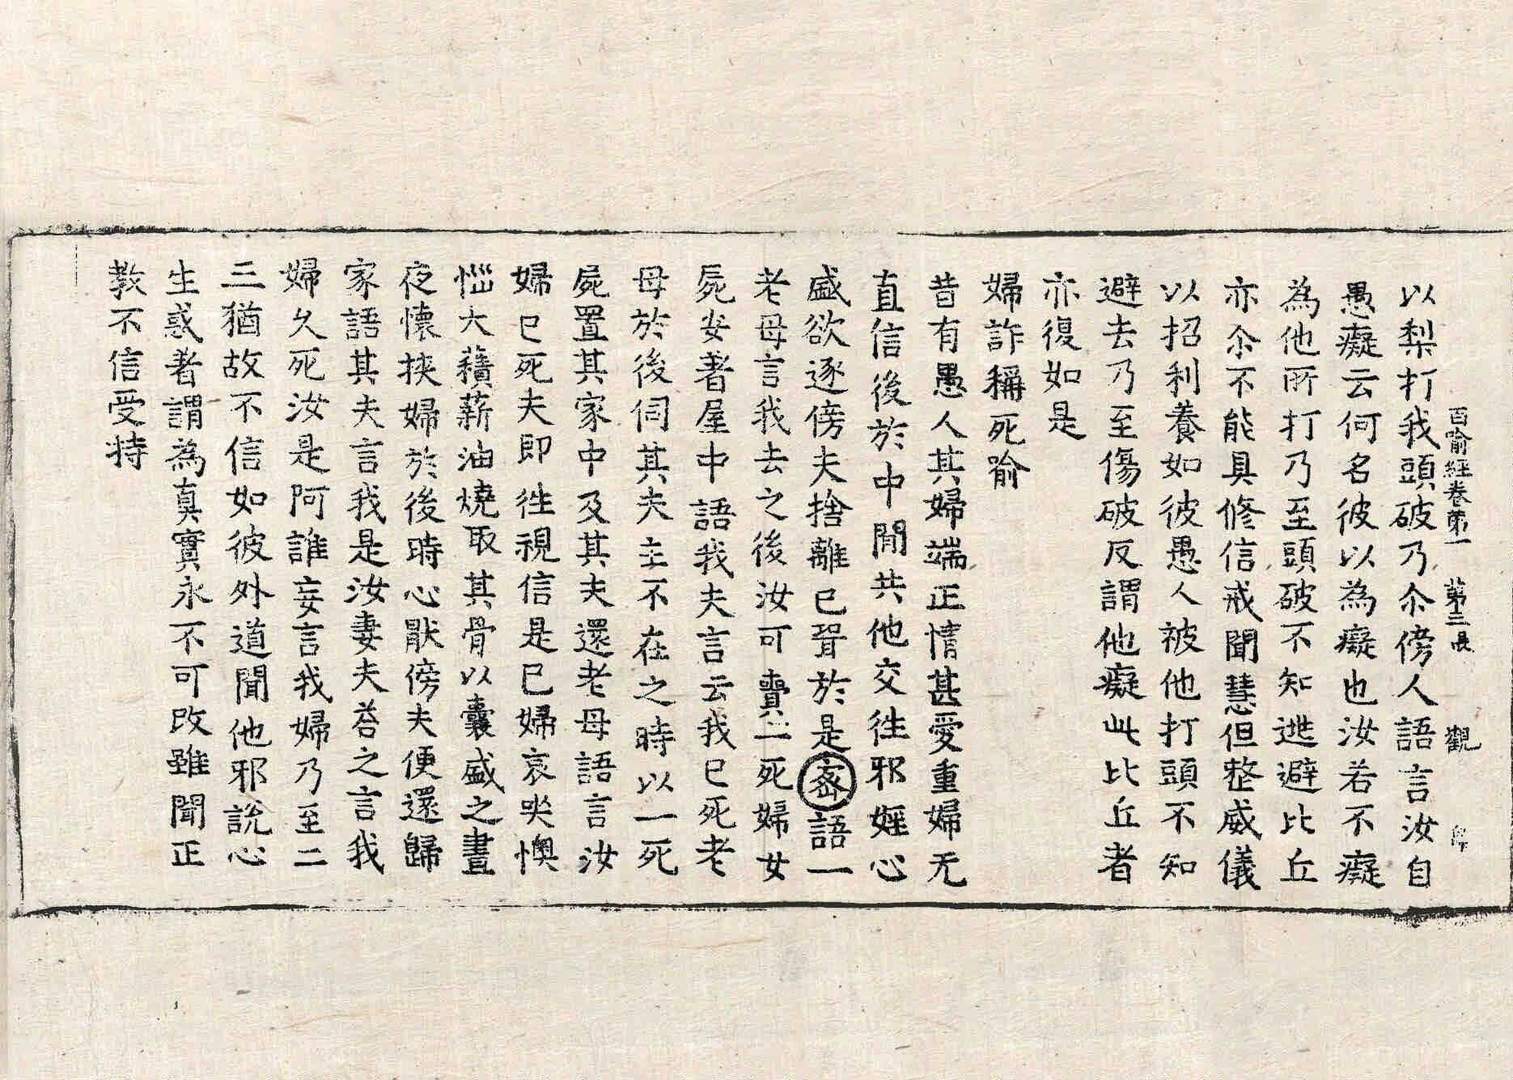 百喻經卷第一　第三張　觀
以梨打我頭破乃尒傍人語言汝自
愚癡云何名彼以為癡也汝若不癡
為他所打乃至頭破不知逃避比丘
亦尒不能具修信戒聞慧但整威儀
以招利養如彼愚人被他打頭不知
避去乃至傷破反謂他癡此比丘者
亦復如是
婦詐稱死喻
昔有愚人其婦端正情甚愛重婦无
直信後於中閒共他交徃邪婬心
盛欲逐傍夫捨離已聟於是密語一
老母言我去之後汝可賷一死婦女
屍安著屋中語我夫言云我已死老
母於後伺其夫主不在之時以一死
屍置其家中及其夫還老母語言汝
婦已死夫即徃視信是已婦哀哭懊
惱大䕸薪油燒取其骨以囊盛之晝
夜懷挾婦於後時心猒傍夫便還歸
家語其夫言我是汝妻夫荅之言我
婦久死汝是阿誰妄言我婦乃至二
三猶故不信如彼外道聞他邪說心
生惑著謂為真實永不可改雖聞正
教不信受持